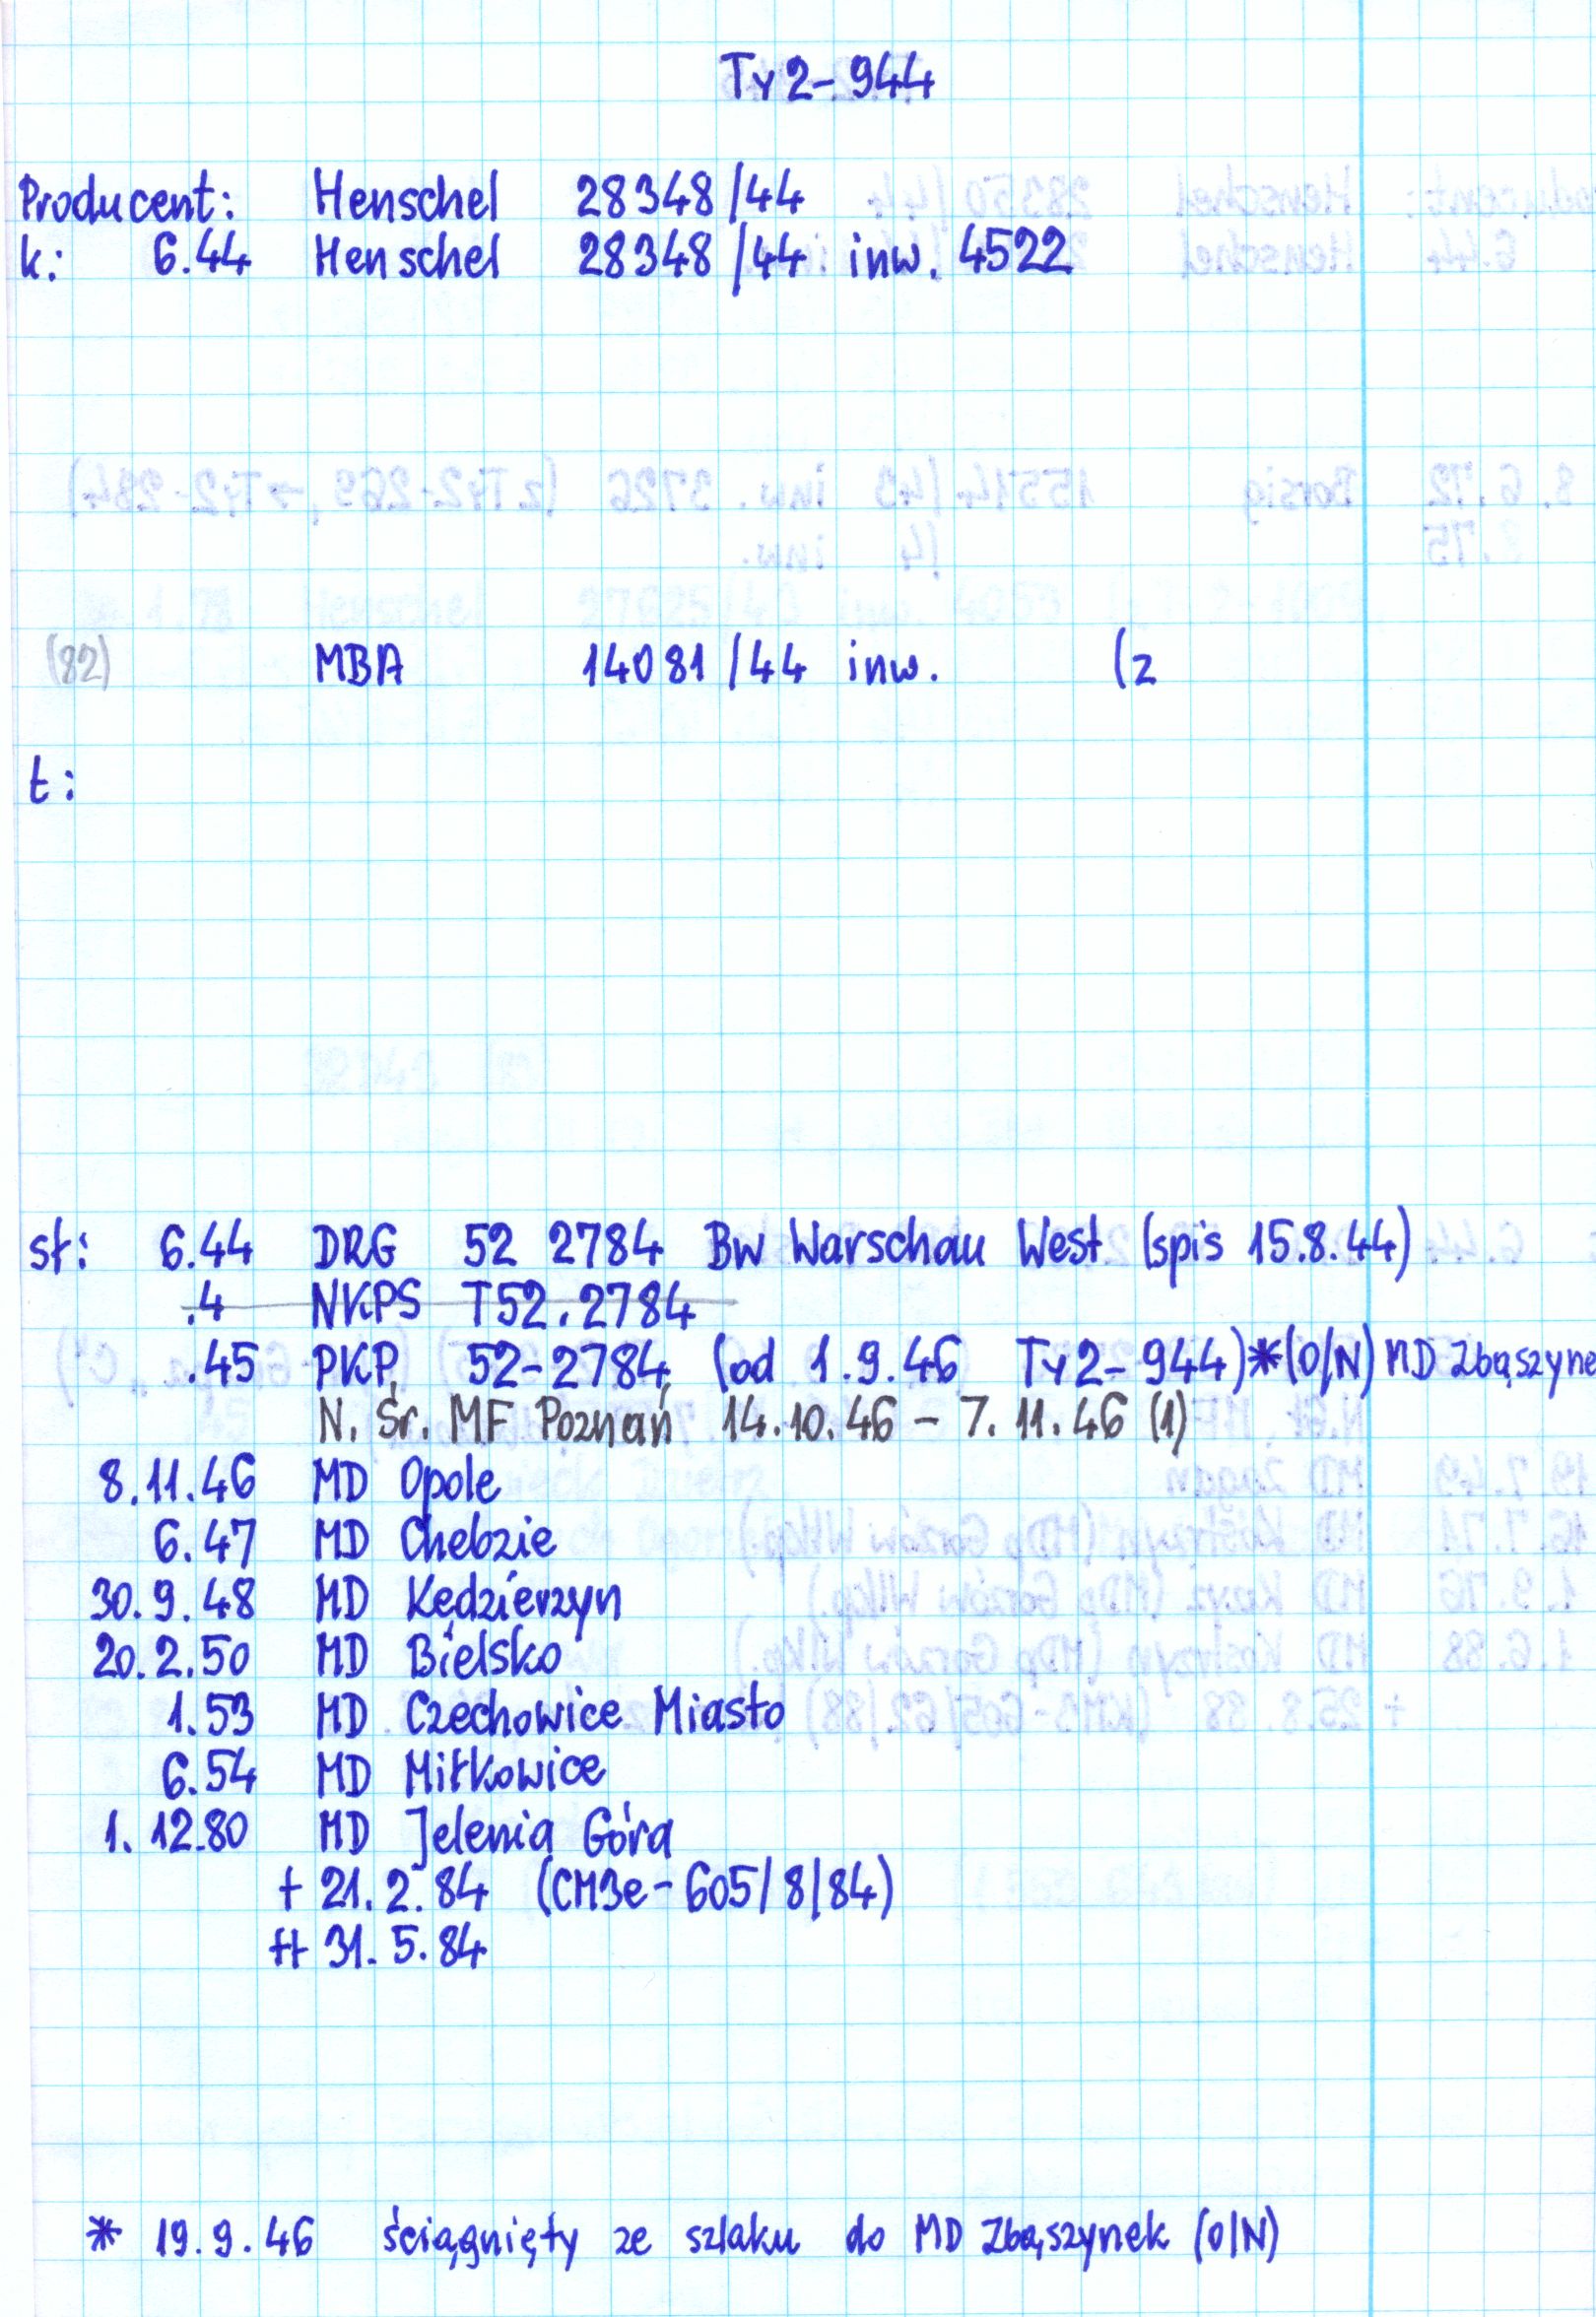 Ty2-944
Producent: Henschel 28348/44
k: 6.44 Henschel 28348/44 inw. 4522
(82) MBA 14081/44 inw. (z
t:
st: 6.44 DRG 52 2784 Bw Warschau West (spis 15.8.44)
.4 NKPS T52.2784
.45 PKP 52-2784 (od 1.9.46 Ty2-944)*(O/N) MD Zbąszyne
N. Śr. MF Poznań 14.10.46 - 7.11.46 (1)
8.11.46 MD Opole
6.47 MD Chebzie
30.9.48 MD Kędzierzyn
20.2.50 MD Bielsko
1.53 MD Czechowice Miasto
6.54 MD Miłkowice
1.12.80 MD Jelenia Góra
+ 21.2.84 (CM3e-605/8/84)
++ 31.5.84
* 19.9.46 ściągnięty ze szlaku do MD Zbąszynek (O/N)